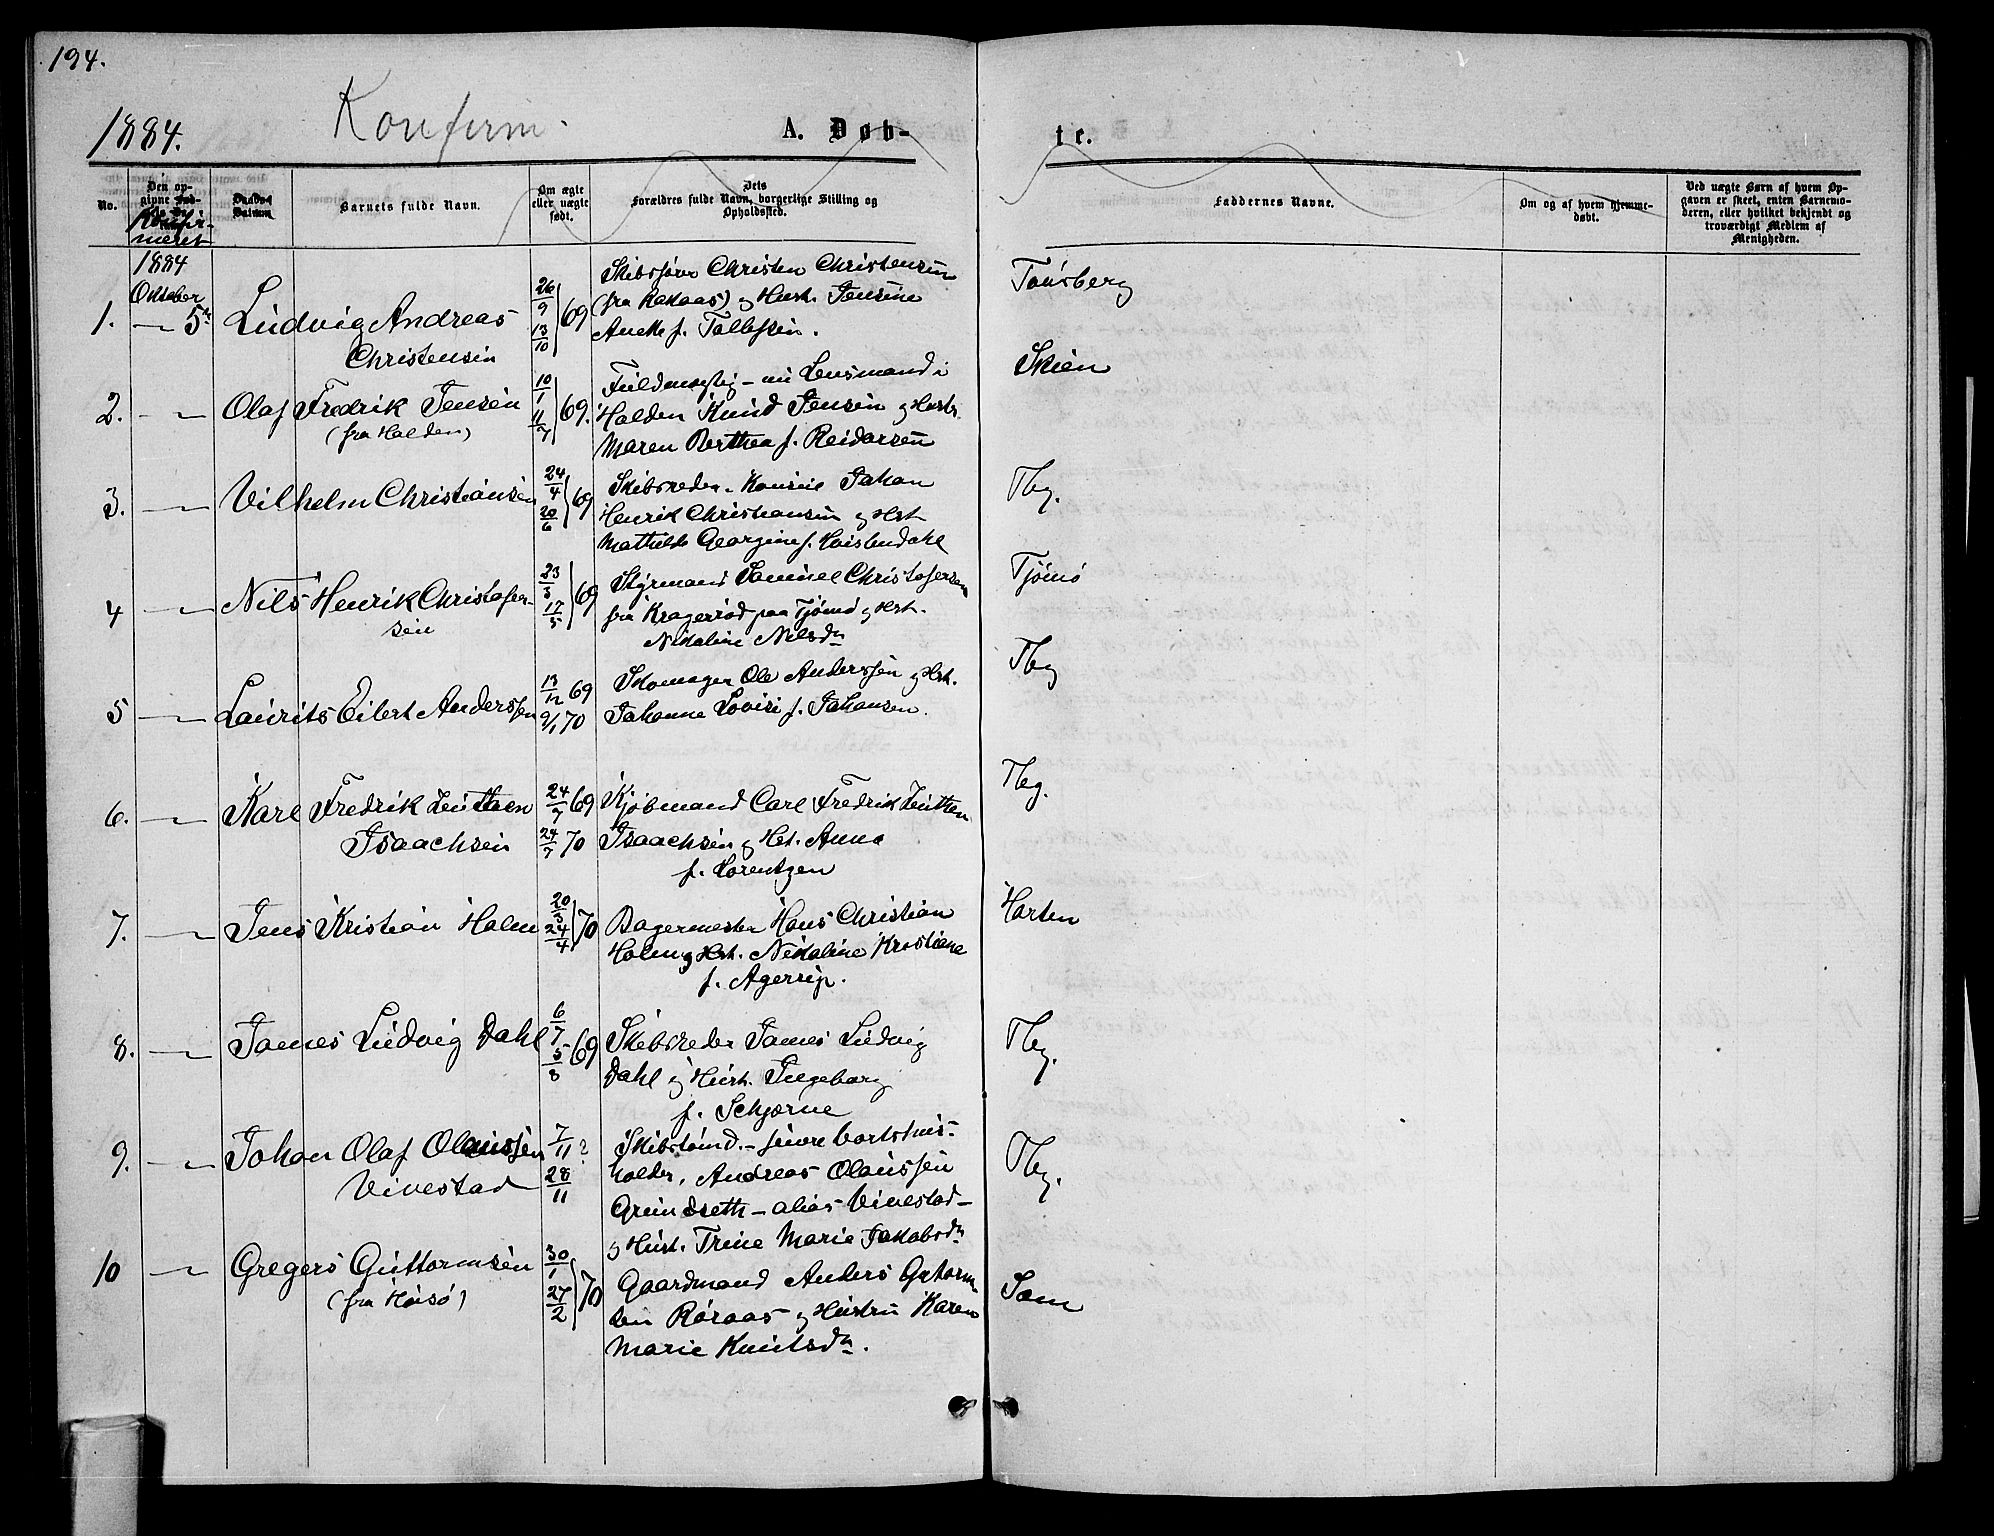 194.
1884.
Konfirm.
A. Døb-
te.
No.
Den op-
givne
Daabs
Datum
Barnets fulde Navn.
Om ægte
eller uægte
født.
Dets
Forældres fulde Navn, borgerlige Stilling og
Opholdssted.
Faddernes Navne.
Om og af hvem hjemme-
døbt.
Ved uægte Børn af hvem Op-
gaven er skeet, enten Barnemo-
deren, eller hvilket bekjendt og
troværdigt Medlem af
Menigheden.
Konfir-
meret
1884
Oktober
1. — 5te Ludvig Andreas
Christensen
26/9 13/10 69
Skibsfører Christen Christensen
(fra Rakaas) og Hust. Jensine
f. Tollefsen.
Tønsberg
2. — Olaf Fredrik Jensen
(fra Halden)
10/1 11/7 69.
Fuldmægtig — nu Lensmand i
Halden Knud Jensen og Hustr.
Maren Berthea f. Reidarsen
Skien
3. — Vilhelm Christiansen
24/4 20/6 69
Skibsreder Johan
Henrik Christiansen og Hst
Mathilde Georgine f. Hvistendahl
Tbg.
4 — Nils Henrik Christofer-
sen
23/3 17/5 69
Styrmand Samuel Christofersen
fra Kragerød paa Tjømø og Hst.
Nikoline Nilsdr
Tjömö
5 — Laurits Eilert Anderssen
13/12 69
9/1 70
Skomager Ole Anderssen og Hst.
Johanne Lovise f. Johansen.
Tbg
6. — Karl Fredrik Zeuthen
Isaachsen
24/7 69
24/7 70
Kjøbmand Carl Fredrik Zeuthen
Isaachsen og Hst. Anna
f. Lorentzen
Tbg.
7. — Jens Kristian Holm
20/3 24/4 70
Bagermester Hans Christian
Holm og Hst. Nikoline Kristiane
f. Agerup.
Horten
8. — James Ludvig Dahl
6/7 5/8 69
Skibsreder James Ludvig
Dahl og Hust. Ingeborg
f. Schjerne
Tbg.
9. — Johan Olaf Olaussen
Vivestad
7/11 ?
28/11
Skibstømd. — senere Vertshus-
holder, Andreas Olaussen
Grindseth — alias Vivestad —
og Hust. Trine Marie Jakobsdr
Tbg.
10 — Gregers Guttormsen
(fra Husø)
30/1 27/2 70
Gaardmand Anders Gutorm
sen Røraas og Hustru Karen
Marie Knutsdr.
Sem